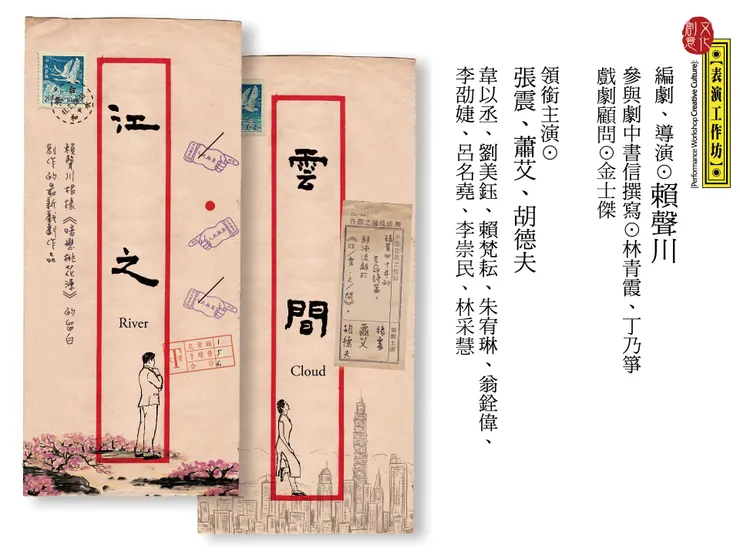 文化
創意
表演工作坊
[Performance Workshop Creative Culture]
編劇、導演⊙賴聲川
參與劇中書信撰寫⊙林青霞、丁乃箏
戲劇顧問⊙金士傑
領銜主演⊙
張震、蕭艾、胡德夫
韋以丞、劉美鈺、賴梵耘、朱宥琳、翁銓偉、
李劭婕、呂名堯、李崇民、林采慧
雲
間
Cloud
江
之
River
賴聲川根據《暗戀桃花源》的留白
創作的最新戲劇作品
張震
蕭艾
胡德夫
領銜主演